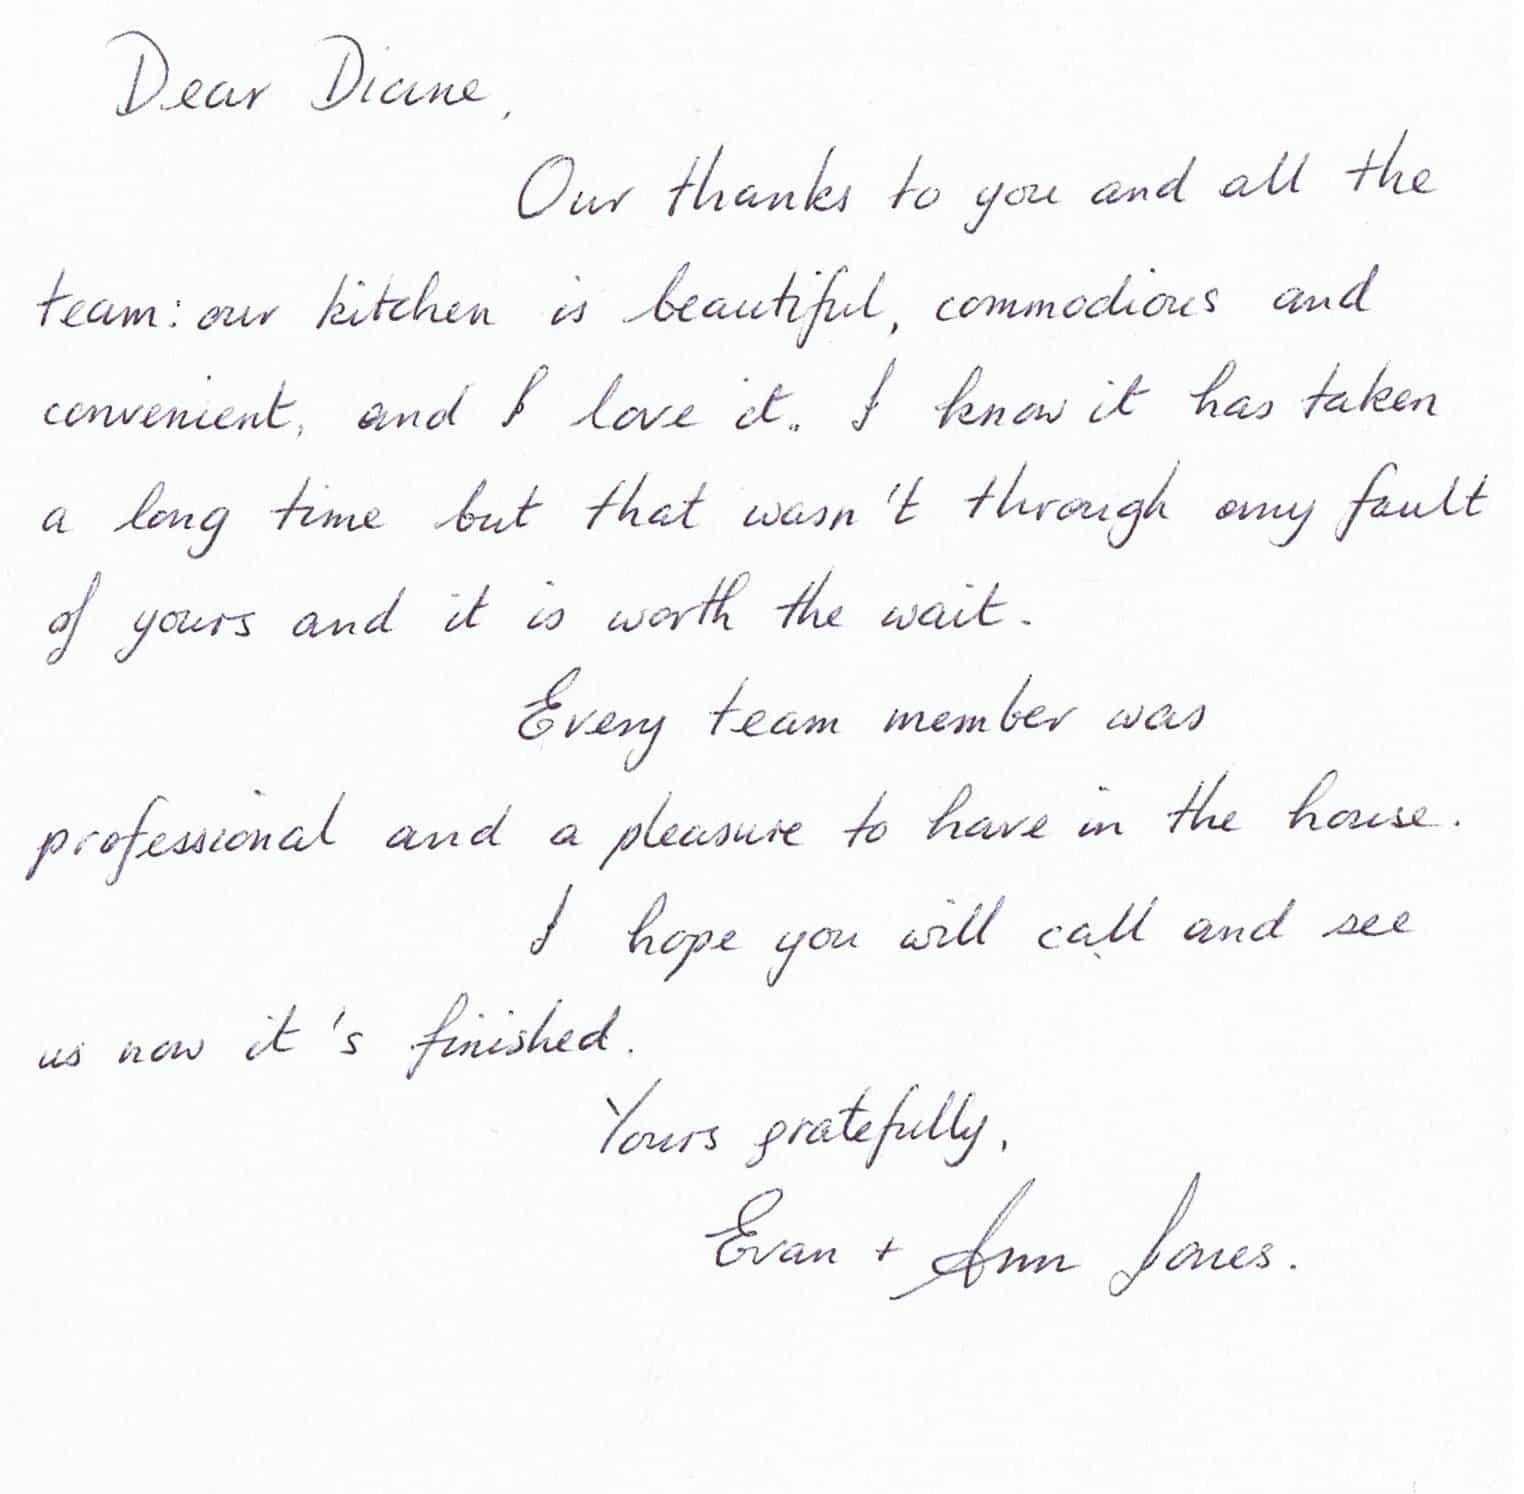 Dear Diane,
Our thanks to you and all the
team: our kitchen is beautiful, commodious and
convenient, and I love it. I know it has taken
a long time but that wasn't through any fault
of yours and it is worth the wait.
Every team member was
professional and a pleasure to have in the house.
I hope you will call and see
us now it's finished.
Yours gratefully,
Evan + Ann Jones.